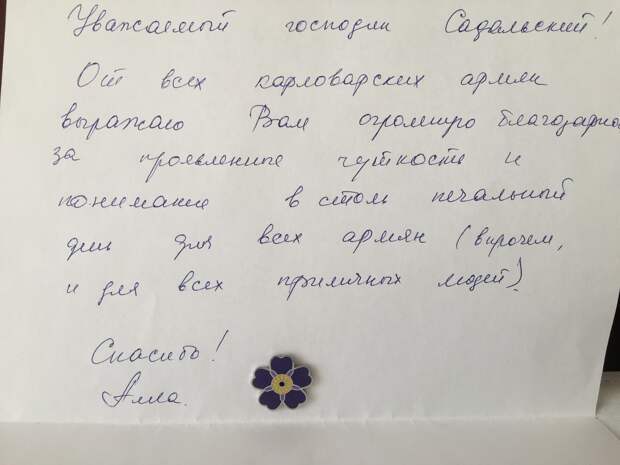 Уважаемый господин Садальский!
От всех карловарских армян
выражаю Вам огромную благодарнос
за проявление чуткости и
понимание в столь печальный
день для всех армян (впрочем,
и для всех приличных людей).
Спасибо!
Алла.